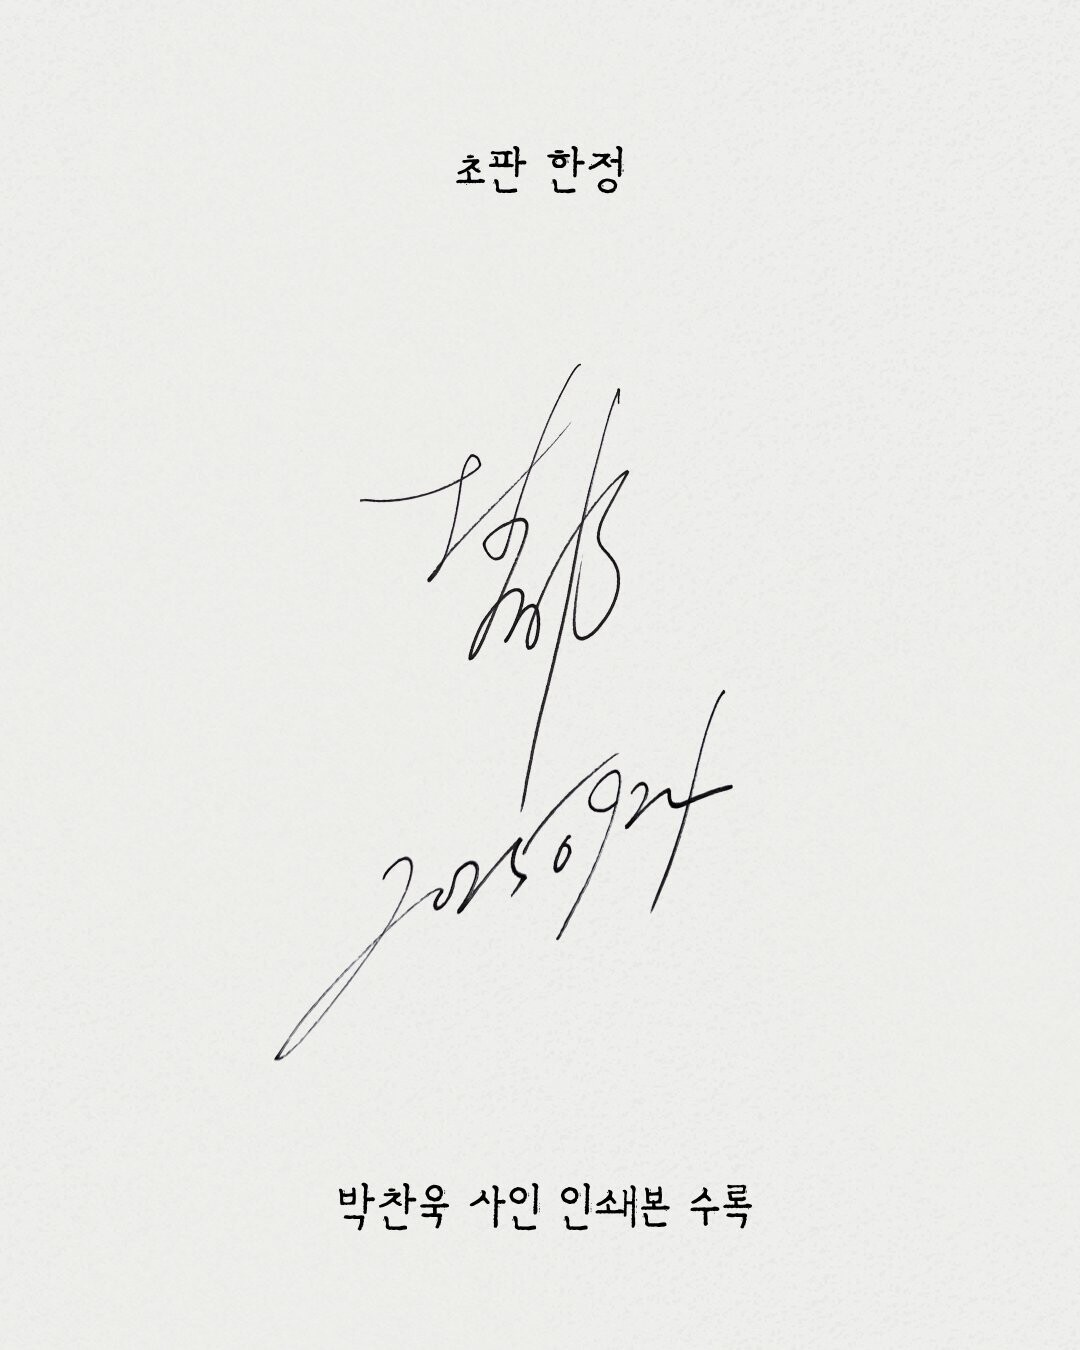 초판 한정
20250924
박찬욱 사인 인쇄본 수록